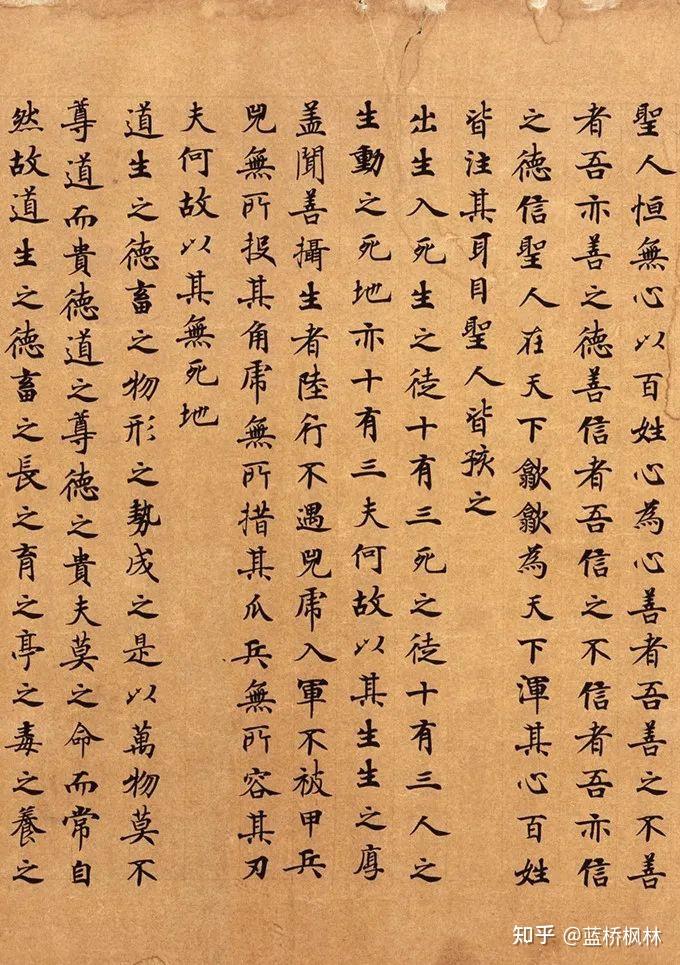 聖人恒無心以百姓心為心善者吾善之不善
者吾亦善之徳善信者吾信之不信者吾亦信
之徳信聖人在天下歙歙為天下渾其心百姓
皆注其耳目聖人皆孩之
出生入死生之徒十有三死之徒十有三人之
生動之死地亦十有三夫何故以其生生之厚
盖聞善攝生者陸行不遇兕虎入軍不被甲兵
兕無所投其角虎無所措其爪兵無所容其刃
夫何故以其無死地
道生之徳畜之物形之勢成之是以萬物莫不
尊道而貴徳道之尊徳之貴夫莫之命而常自
然故道生之徳畜之長之育之亭之毒之養之
知乎 @蓝桥枫林